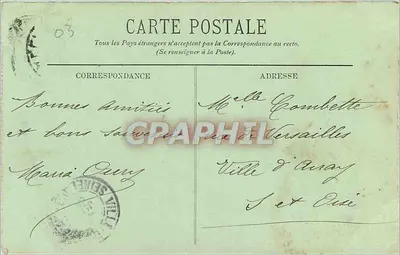 03
CARTE POSTALE
Tous les Pays étrangers n'acceptent pas la Correspondance au recto.
(Se renseigner à la Poste).
CORRESPONDANCE
ADRESSE
Bonnes amitiés
et bons souvenirs
Maria
Melle Combette
de Versailles
Ville d'Avray
S et Oise
CPAPHIL
VILLE